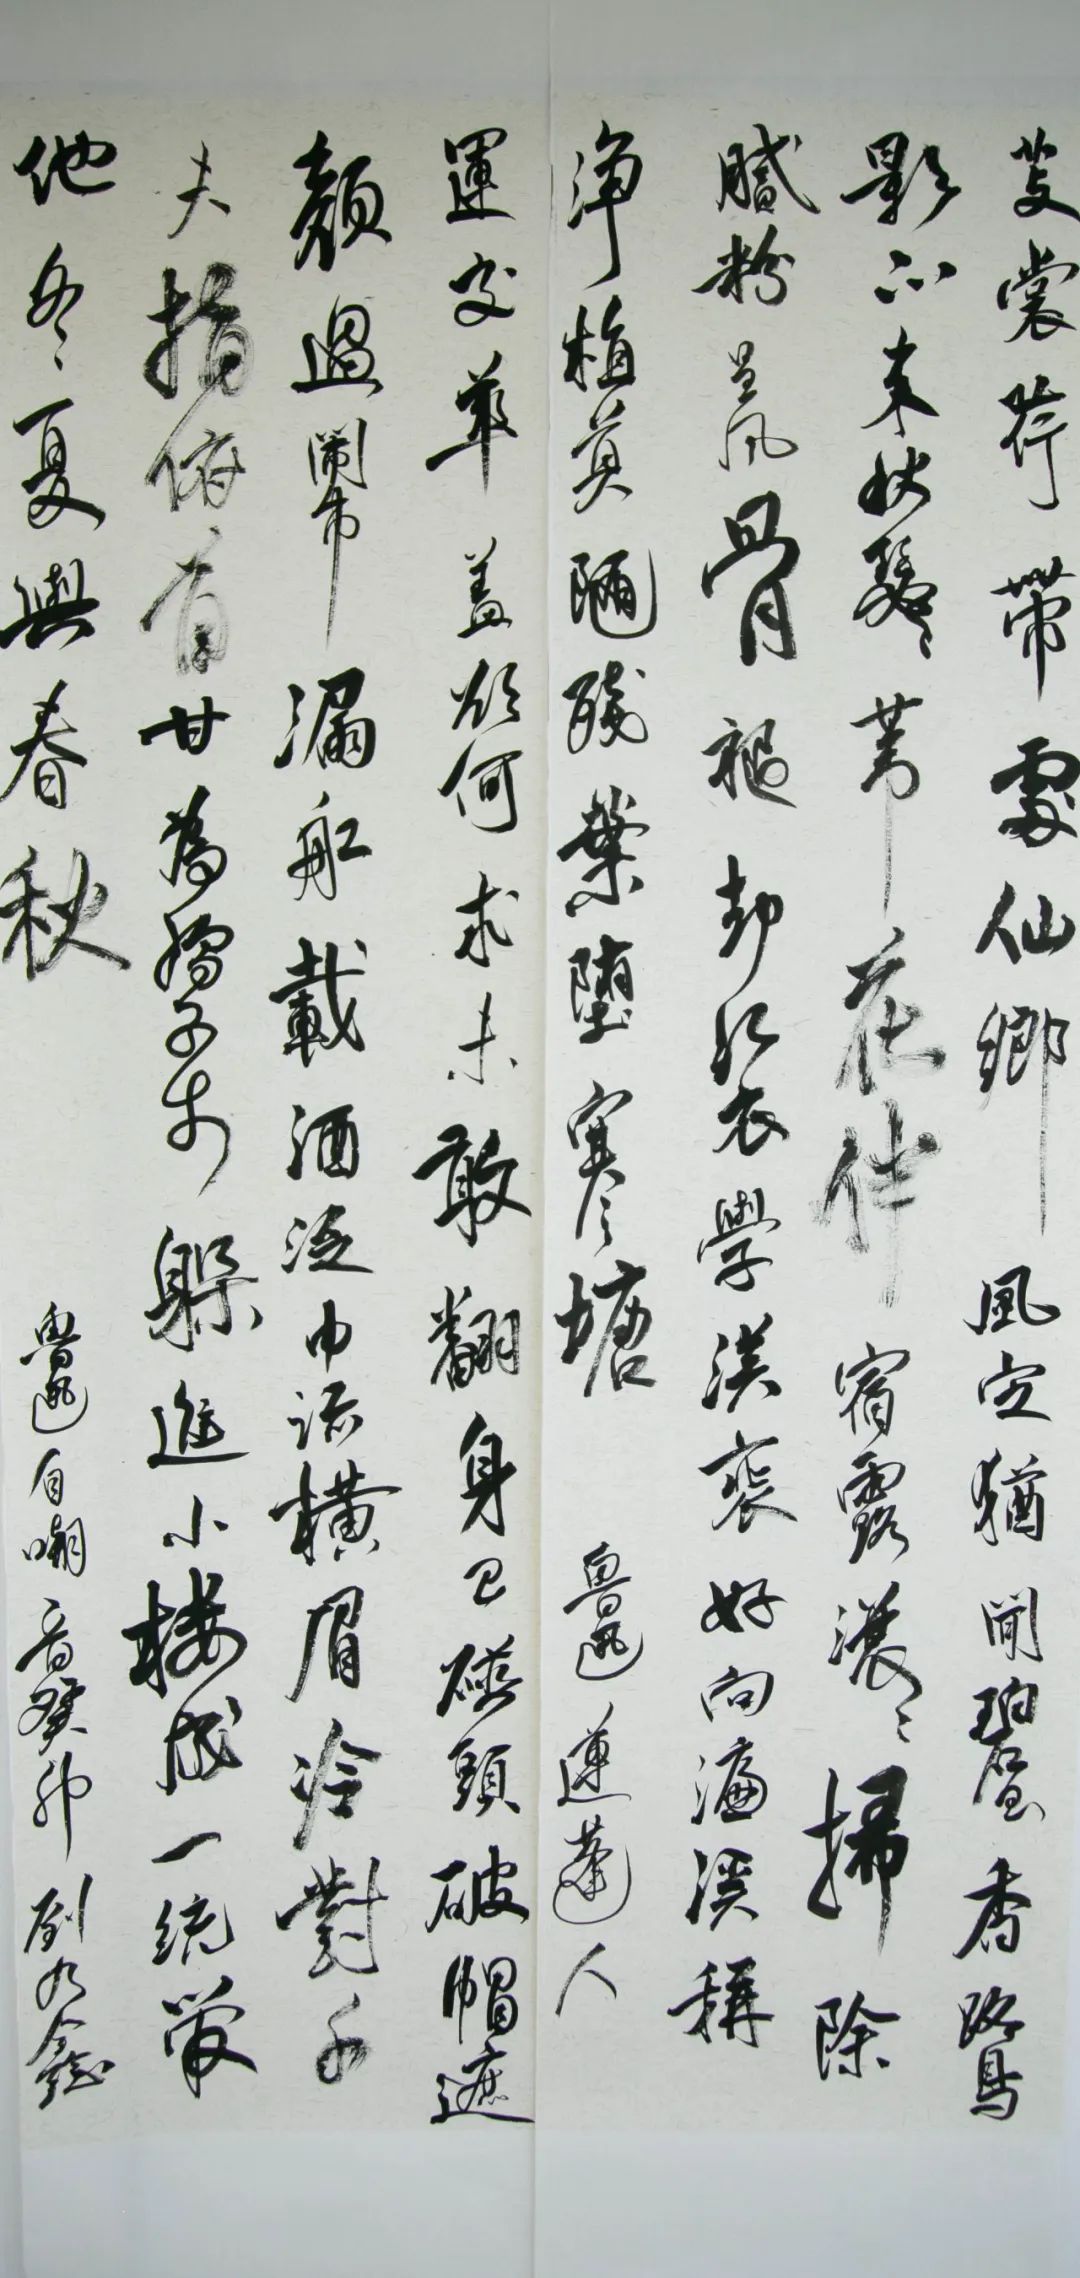 芰裳荇帶處仙鄉風定猶聞碧玉香鷺
影不來秋瑟々葦花伴宿露瀼々掃除
膩粉呈風骨褪却紅衣學淡裝好向濂溪稱
淨植莫隨殘葉墮寒塘 魯迅蓮蓬人
運交華蓋欲何求未敢翻身已碰頭破帽遮
顏過鬧市漏船載酒泛中流橫眉冷對千
夫指俯首甘為孺子牛躲進小樓成一統管
他冬夏與春秋 魯迅自嘲 癸卯 劉九